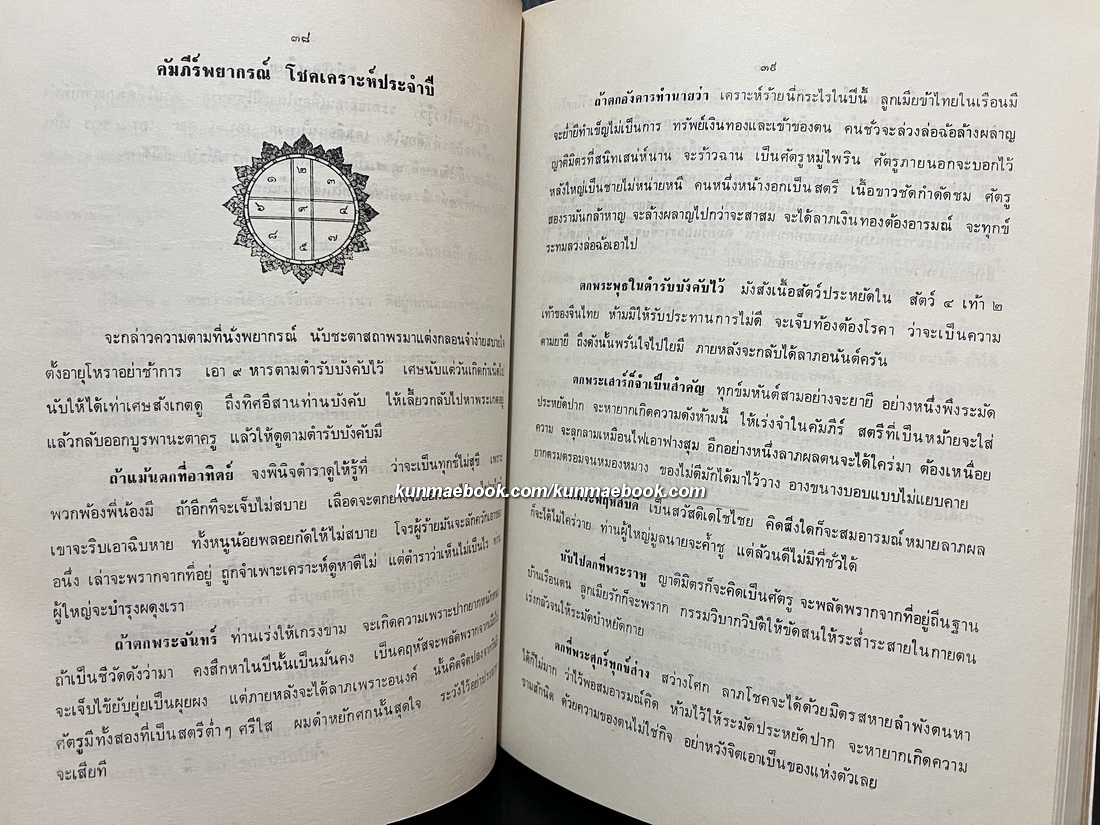 ๓๘
คัมภีร์พยากรณ์ โชคเคราะห์ประจำปี
๑ ๒ ๓
๖ ๙ ๔
๘ ๕ ๗
จะกล่าวความตามที่นั่งพยากรณ์ นับชะตาสถาพรมาแต่งกลอนจำง่ายสบายใจ
ตั้งอายุโหราอย่าช้าการ เอา ๙ หารตามตำรับบังคับไว้ เศษนับแต่วันเกิดกำเนิดไป
นับให้ได้เท่าเศษสังเกตดู ถึงทิศอีสานท่านบังคับ ให้เลี้ยวกลับไปหาพระเกตอยู่
แล้วกลับออกบูรพานะตาครู แล้วให้ดูตามตำรับบังคับมี
ถ้าแม้นตกที่อาทิตย์ จงพินิจตำราดูให้รู้ที่ ว่าจะเป็นทุกข์ไม่สุขี เพราะ
พวกพ้องพี่น้องมี ถ้าอีกทีจะเจ็บไม่สบาย เลือดจะตกยาง
เขาจะริบเอาฉิบหาย ทั้งหนูน้อยพลอยกัดให้ไม่สบาย โจรผู้ร้ายมันจะลักควักเอา
อนึ่ง เล่าจะพรากจากที่อยู่ ถูกจำเพาะเคราะห์ดูหาดีไม่ แต่ตำราว่าเห็นไม่เป็นไร ท่าน
ผู้ใหญ่จะบำรุงผดุงเรา
ถ้าตกพระจันทร์ ท่านเร่งให้เกรงขาม จะเกิดความเพราะปากยากหนักหนา
ถ้าเป็นชีวัดดังว่ามา คงสึกหาในปีนั้นเป็นมั่นคง เป็นคฤหัสจะพลัดพรากจากเมีย
จะเจ็บไข้ยับยุ่ยเป็นผุยผง แต่ภายหลังจะได้ลาภเพราะอนงค์ นั้นคิดจิตปลง
ศัตรูมีทั้งสองที่เป็นสตรีต่ำๆ ศรีใส ผมดำหยักศกนั้นสุดใจ ระวังไว้อย่าประมาท
จะเสียที
๓๙
ถ้าตกอังคารทำนายว่า เคราะห์ร้ายนี่กระไรในปีนี้ ลูกเมียข้าไทยในเรือนมี
จะยำยีทำเข็ญไม่เป็นการ ทรัพย์เงินทองและเข้าของตน คนชั่วจะล่วงล่อฉ้อล้างผลาญ
ญาติมิตรที่สนิทเสน่ห์นาน จะร้าวฉาน เป็นศัตรูหมู่ไพริน ศัตรูภายนอกจะบอกไว้
หลังใหญ่เป็นชายไม่หน่ายหนี คนหนึ่งหน้างอกเป็นสตรี เนื้อขาวชัดกำดัดชม ศัตรู
สองรามันกล้าหาญ จะล้างผลาญไปกว่าจะสาสม จะได้ลาภเงินทองต้องอารมณ์ จะทุกข์
ระทมลวงล่อฉ้อเอาไป
ตกพระพุธในตำรับบังคับไว้ มังสังเนื้อสัตว์ประหยัดใน สัตว์ ๔ เท้า ๒
เท้าของจีนไทย ห้ามมิให้รับประทานการไม่ดี จะเจ็บท้องต้องโรคา ว่าจะเป็นความ
ตามยายี ถึงดังนั้นพรั่นใจไปใยมี ภายหลังจะกลับได้ลาภอนันต์ครัน
ตกพระเสาร์ก็จำเป็นสำคัญ ทุกข์มหันต์สามอย่างจะยายี อย่างหนึ่งพึงระมัด
ประหยัดปาก จะหายากเกิดความดังห้ามนี้ ให้เร่งจำในคัมภีร์ สตรีที่เป็นหม้ายจะใส่
ความ จะลุกลามเหมือนไฟเอาฟางสุม อีกอย่างหนึ่งลาภผลตนจะได้ใคร่มา ต้องเหนื่อย
ยากตรมตรอมจนหมองหมาง ของไม่ดีมักได้มาไว้วาง อางขนางบอบแบบไม่แยบคาย
kunmaebook.com/kunmaebook.com
พระพฤหัสบดี เป็นสวัสดิเดโชไชย คิดสิ่งใดก็จะสมอารมณ์หมายลาภผล
ก็จะได้ไม่ใคร่วาย ท่านผู้ใหญ่มูลนายจะค้ำชู แต่ล้วนดีไม่มีที่ชั่วได้
นับไปตกที่พระราหู ญาติมิตรก็จะคิดเป็นศัตรู จะพลัดพรากจากที่อยู่ถิ่นฐาน
บ้านเรือนตน ลูกเมียรักก็จะพราก กรรมวิบากวิบัติให้ขัดสนให้ระส่ำระสายในกายตน
เร่งกลัวจนให้ระมัดบำหยัดกาย
ตกที่พระศุกร์ทุกข์ส่าง สว่างโศก ลาภโชคจะได้ด้วยมิตรสหายลำพังตนหา
ได้ก็ไม่มาก ว่าไว้พอสมอารมณ์คิด ห้ามไว้ให้ระมัดประหยัดปาก จะหายากเกิดความ
รามสักนิด ด้วยความของตนไม่ใช่กิจ อย่าหวังจิตเอาเป็นของแห่งตัวเลย